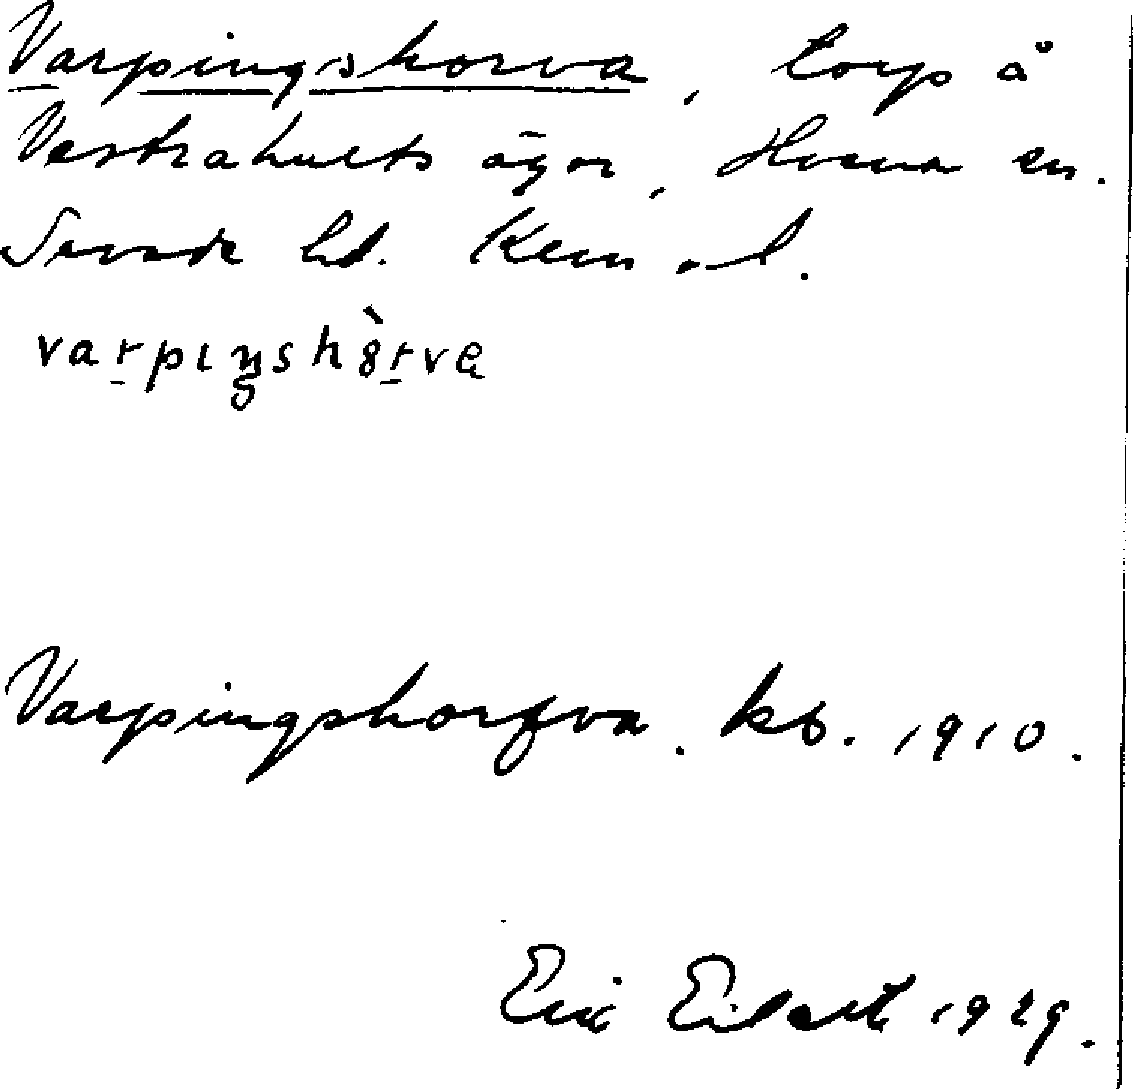 Varpingshorva, torp å
Vestrahults ägor, Hvena sn.
Sevede hd. Kem o. l.
varpıŋshòrva
Varpingshorfva. kb. 1910.
Erik Eilert 1929.